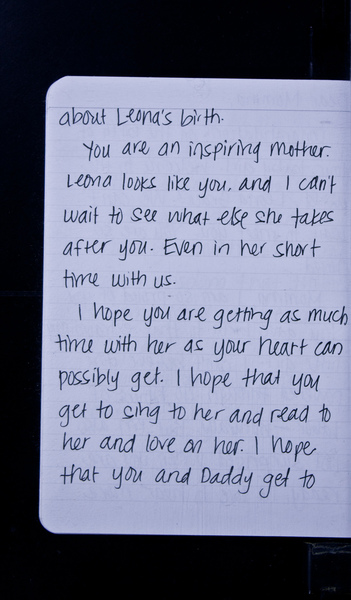 about Leona's birth.
You are an inspiring mother.
Leona looks like you, and I can't
wait to see what else she takes
after you. Even in her short
time with us.
I hope you are getting as much
time with her as your heart can
possibly get. I hope that you
get to sing to her and read to
her and love on her. I hope
that you and Daddy get to